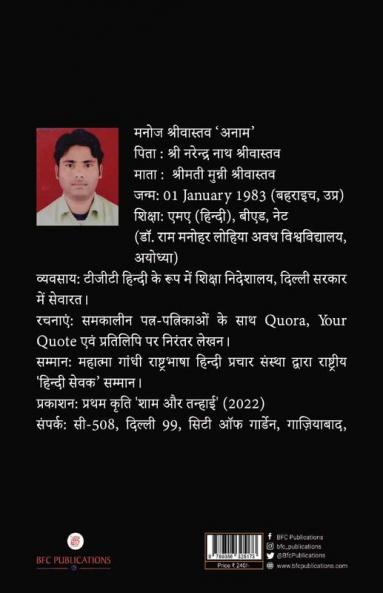 मनोज श्रीवास्तव ‘अनाम’
पिता : श्री नरेन्द्र नाथ श्रीवास्तव
माता : श्रीमती मुन्नी श्रीवास्तव
जन्म: 01 January 1983 (बहराइच, उप्र)
शिक्षा: एमए (हिन्दी), बीएड, नेट
(डॉ. राम मनोहर लोहिया अवध विश्वविद्यालय,
अयोध्या)
व्यवसाय: टीजीटी हिन्दी के रूप में शिक्षा निदेशालय, दिल्ली सरकार
में सेवारत।
रचनाएं: समकालीन पत्र-पत्रिकाओं के साथ Quora, Your
Quote एवं प्रतिलिपि पर निरंतर लेखन।
सम्मान: महात्मा गांधी राष्ट्रभाषा हिन्दी प्रचार संस्था द्वारा राष्ट्रीय
'हिन्दी सेवक' सम्मान।
प्रकाशन: प्रथम कृति 'शाम और तन्हाई' (2022)
संपर्क: सी-508, दिल्ली 99, सिटी ऑफ गार्डेन, गाज़ियाबाद,
BFC PUBLICATIONS
Price ₹ 240/-
BFC Publications
bfc_publications
@BFCPublications
www.bfcpublications.com